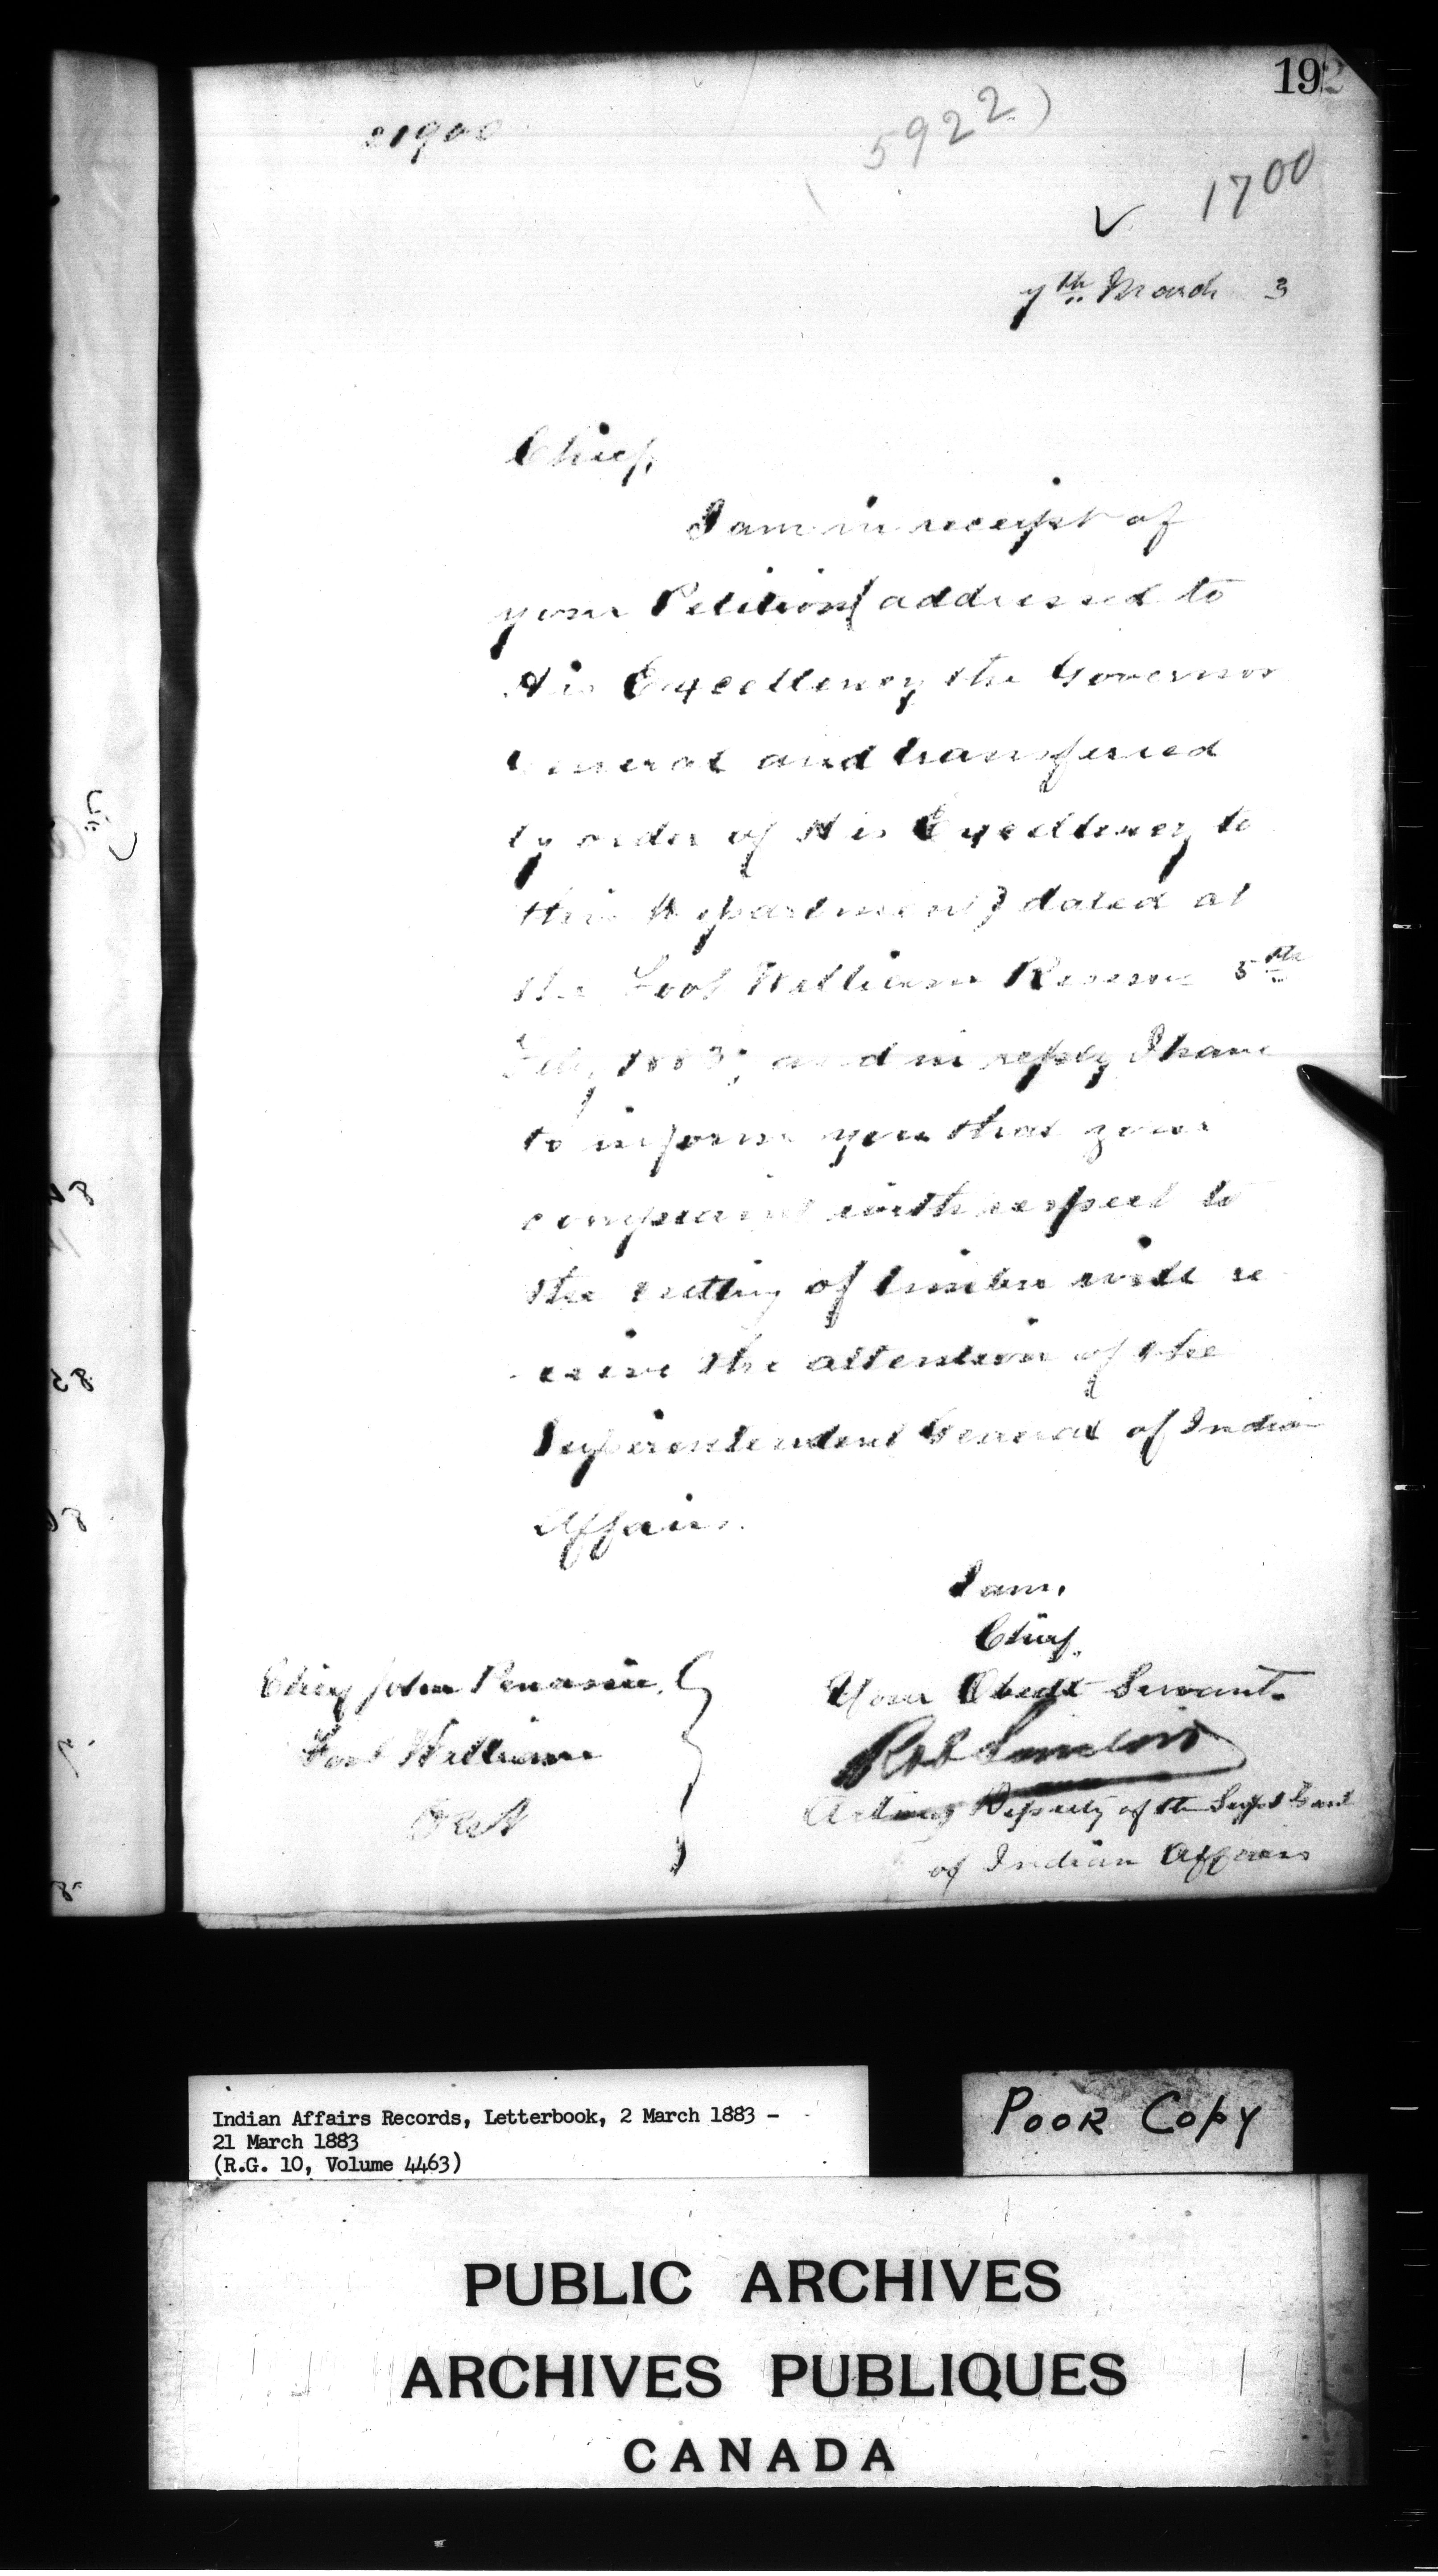 192
21900
5922)
1700
7th March 3
Chief,
I am in receipt of
your Petition (addressed to
His Excellency the Governor
General and transferred
by order of His Excellency to
this Department) dated at
the Fort William Reserve 5th
Feby 1883; and in reply I have
to inform you that your
complaint with respect to
the cutting of timber will re
ceive the attention of the
Superintendent General of Indian
Affairs.
I am,
Chief,
Your Obedt Servant.
Chief John Penassie,
Fort William
Ont
Rob Sinclair
Acting Deputy of the Supt Genl
of Indian Affairs
Indian Affairs Records, Letterbook, 2 March 1883 -
21 March 1883
(R.G. 10, Volume 4463)
POOR COPY
PUBLIC ARCHIVES
ARCHIVES PUBLIQUES
CANADA